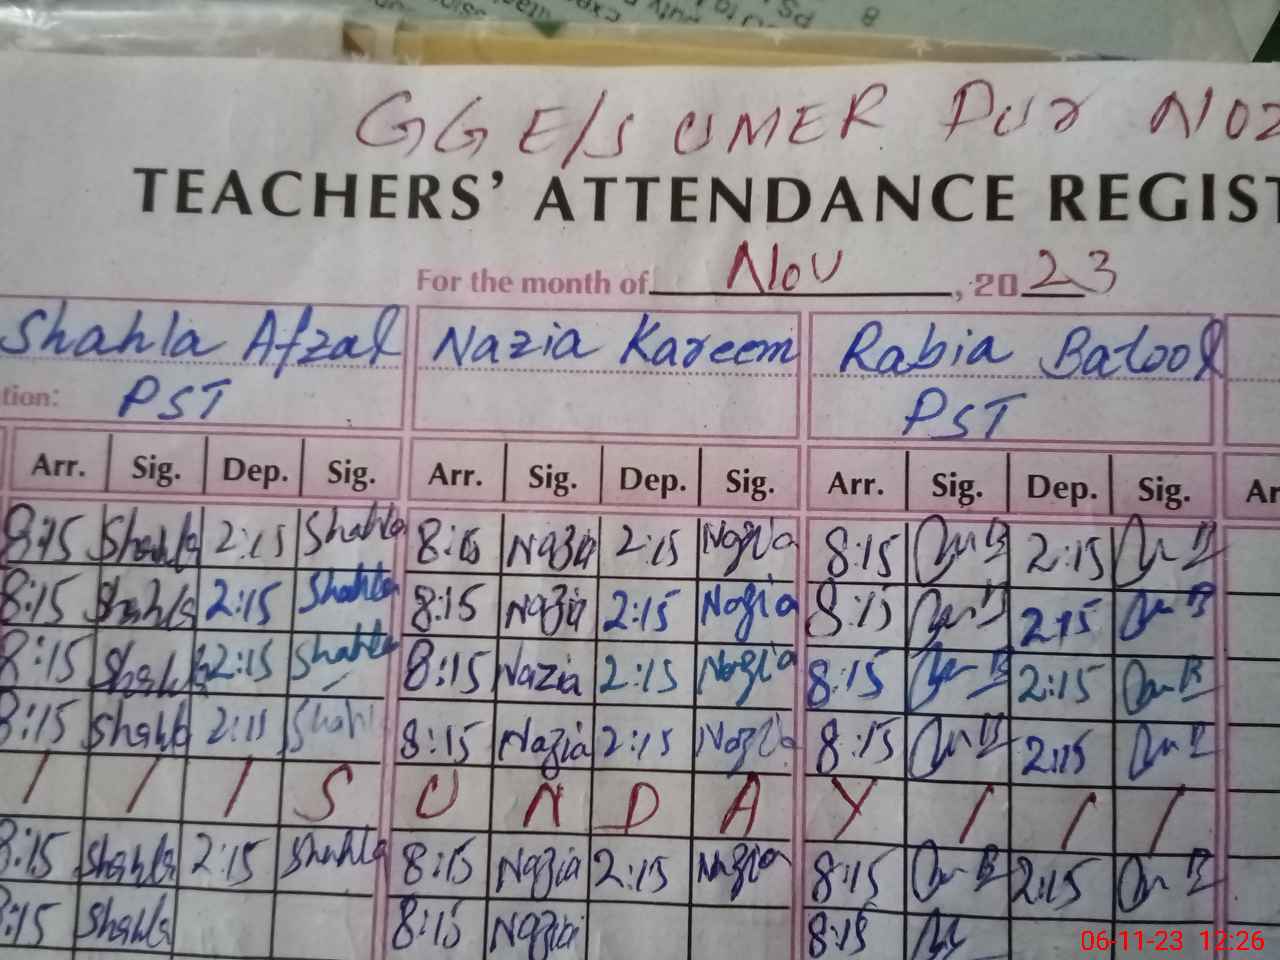 GGE/S UMER PUR NO2
TEACHERS' ATTENDANCE REGIST
For the month of Nov , 20 23
Shahla Afzal Nazia Kareem Rabia Batool
tion: PST PST
Arr. Sig. Dep. Sig. Arr. Sig. Dep. Sig. Arr. Sig. Dep. Sig. Ar
8:15 Shahla 2:15 Shahla 8:15 Nazia 2:15 Nazia 8:15 2:15
8:15 Shahla 2:15 Shahla 8:15 Nazia 2:15 Nazia 8:15 2:15
8:15 Shahla 2:15 Shahla 8:15 Nazia 2:15 Nazia 8:15 2:15
8:15 Shahla 2:15 Shahla 8:15 Nazia 2:15 Nazia 8:15 2:15
/ / / S U N D A Y / / /
8:15 Shahla 2:15 Shahla 8:15 Nazia 2:15 Nazia 8:15 2:15
8:15 Shahla 8:15 Nazia 8:15
06-11-23 12:26